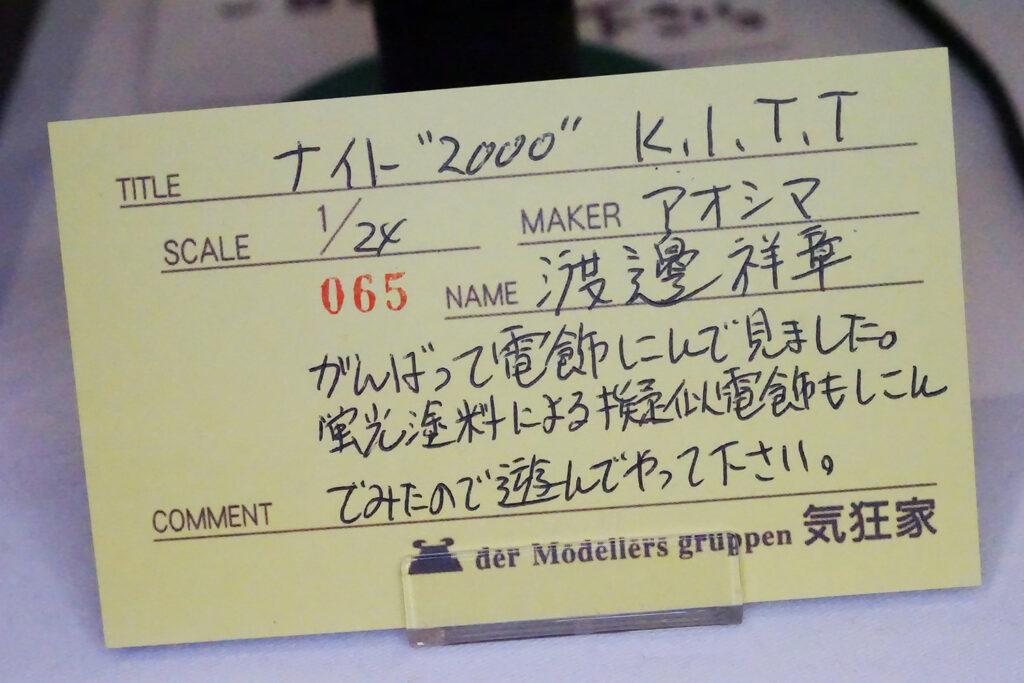 下さい。
TITLE ナイト"2000" K.I.T.T
SCALE 1/24 MAKER アオシマ
065 NAME 渡邊祥章
がんばって電飾しこんで見ました。
蛍光塗料による擬似電飾もしこん
COMMENT でみたので遊んでやって下さい。
der Modellers gruppen 気狂家